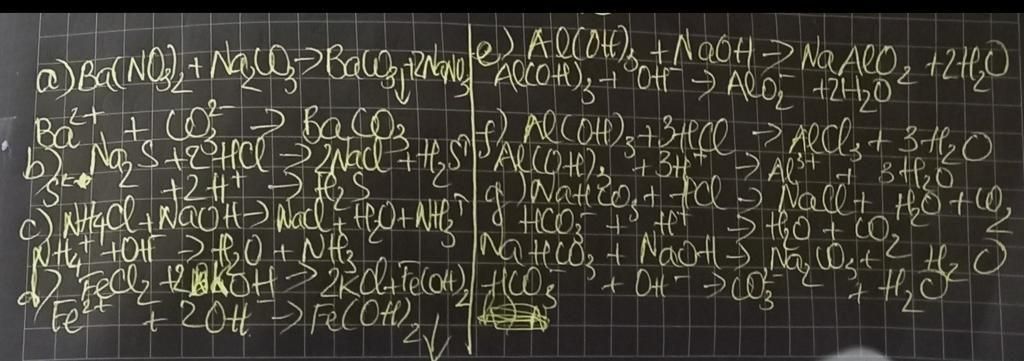 a) Ba(NO3)2 + Na2CO3 → BaCO3↓ + 2NaNO3
Ba2+ + CO3 2- → BaCO3
b) Na2S + 2HCl → 2NaCl + H2S↑
S2- + 2H+ → H2S
c) NH4Cl + NaOH → NaCl + H2O + NH3↑
NH4+ + OH- → H2O + NH3
d) FeCl2 + 2KOH → 2KCl + Fe(OH)2
Fe2+ + 2OH- → Fe(OH)2↓
e) Al(OH)3 + NaOH → NaAlO2 + 2H2O
Al(OH)3 + OH- → AlO2- + 2H2O
f) Al(OH)3 + 3HCl → AlCl3 + 3H2O
Al(OH)3 + 3H+ → Al3+ + 3H2O
g) NaHCO3 + HCl → NaCl + H2O + CO2
HCO3- + H+ → H2O + CO2
NaHCO3 + NaOH → Na2CO3 + H2O
HCO3- + OH- → CO3 2- + H2O